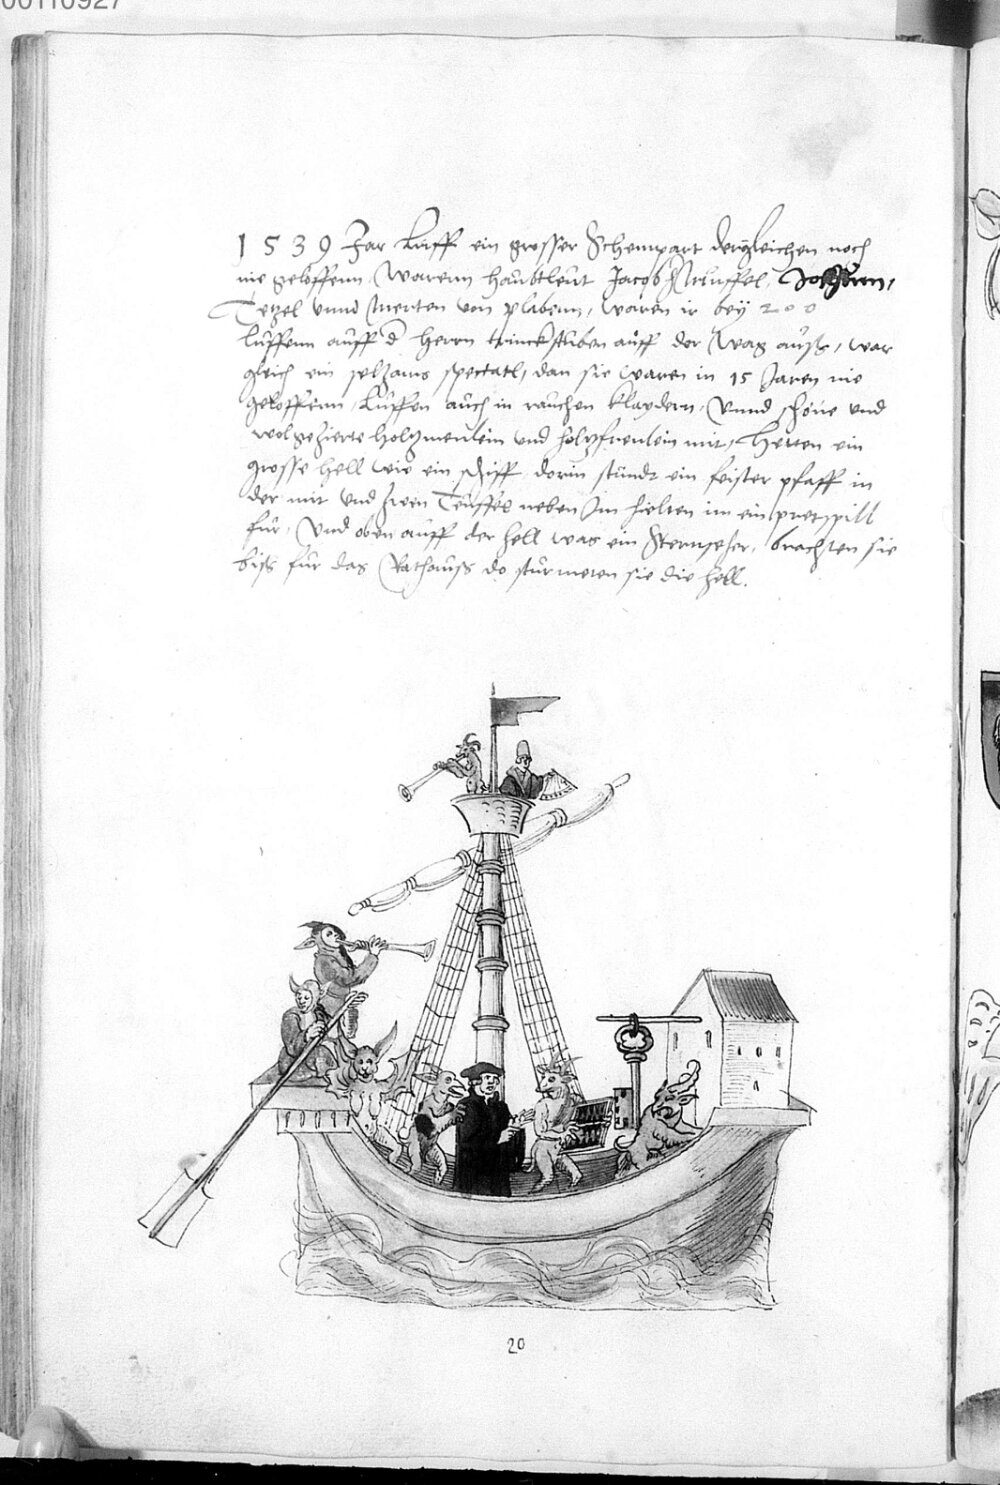 00110927
1539 Jar luff ein grosser Schempart dergleichen noch
nie geloffenn / Warenn haubtleut Jacob Muffel, Jochim,
Tetzel vnnd Merten von plabenn, waren ir bey 200
luffenn auff d herrn trinckstuben auff der Wag auß, war
gleich ein selzams spectatl, dan sie waren in 15 Jaren nie
geloffenn, luffen auch in rauchen klaydern, Vnnd schöne vnd
wolgezierte holtzmenlein vnd holtzfreulein mit, Hetten ein
grosse hell wie ein schiff dorin stundt ein feister pfaff in
der mit vnd zwen Teuffel neben Im hielten im ein pretspill
für, Vnd oben auff der hell was ein Sternseher, brachten sie
biß für das Rathauß do sturmeten sie die hell.
20